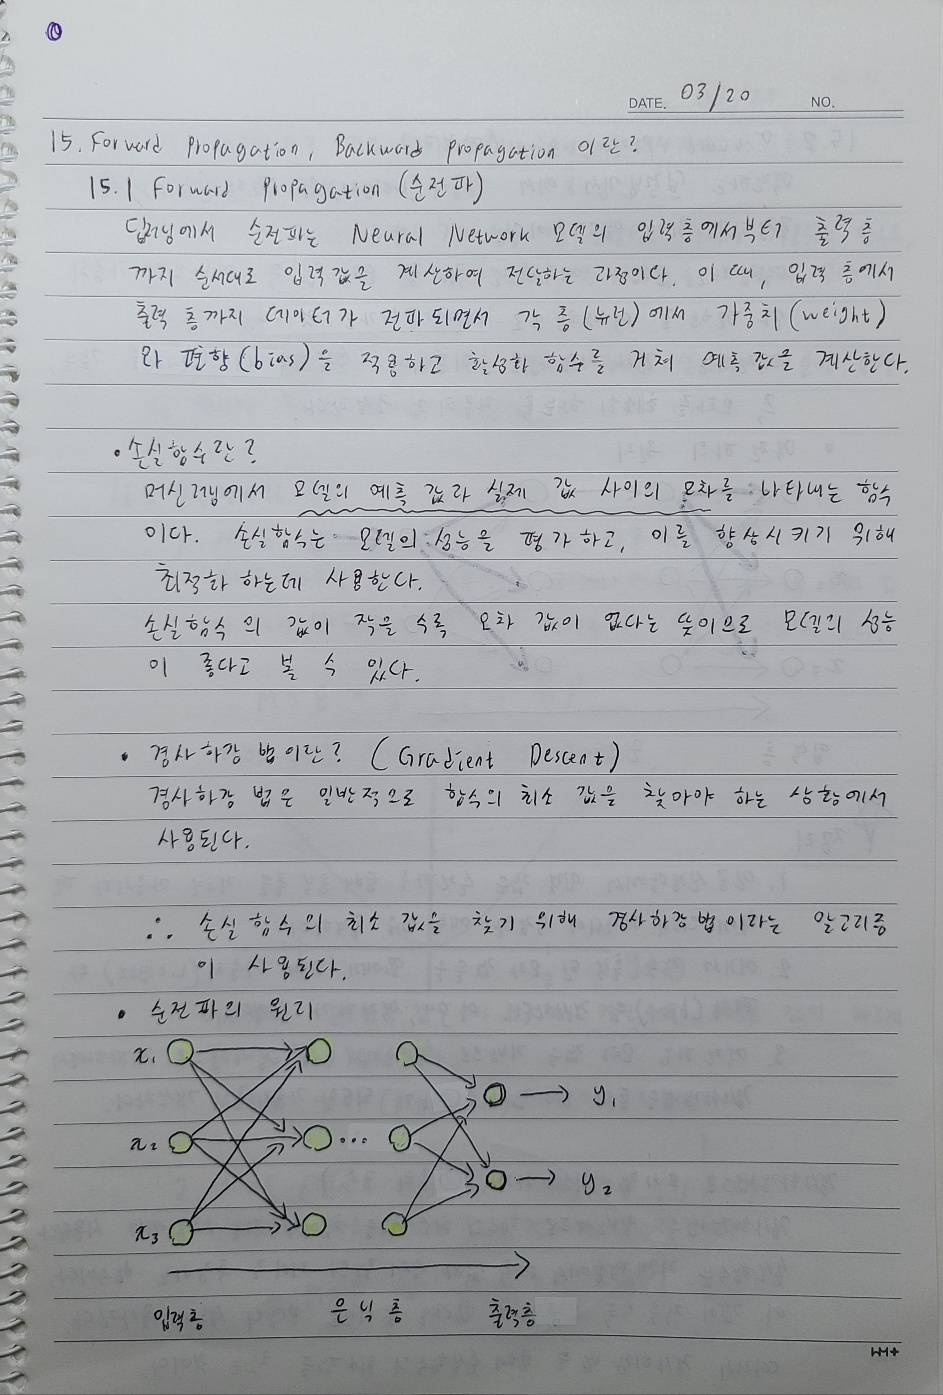 DATE. 03/20 NO.
15. Forward Propagation, Backward propagation 이란?
15.1 Forward Propagation (순전파)
딥러닝에서 순전파는 Neural Network 모델의 입력층에서부터 출력 층
까지 순서대로 입력 값을 계산하여 전달하는 과정이다. 이 때, 입력 층에서
출력 층까지 데이터가 전파되면서 각 층(뉴런)에서 가중치(weight)
와 편향(bias)을 적용하고 활성화 함수를 거쳐 예측 값을 계산한다.
• 손실함수란?
머신러닝에서 모델의 예측 값과 실제 값 사이의 오차를 나타내는 함수
이다. 손실함수는 모델의 성능을 평가하고, 이를 향상시키기 위해
최적화 하는데 사용한다.
손실함수의 값이 작을 수록 오차 값이 없다는 뜻이므로 모델의 성능
이 좋다고 볼 수 있다.
• 경사하강 법이란? (Gradient Descent)
경사하강 법은 일반적으로 함수의 최소 값을 찾아야 하는 상황에서
사용된다.
∴ 손실 함수의 최소 값을 찾기 위해 경사하강법이라는 알고리즘
이 사용된다.
• 순전파의 원리
x₁
y₁
x₂ ...
y₂
x₃
입력층 은닉층 출력층